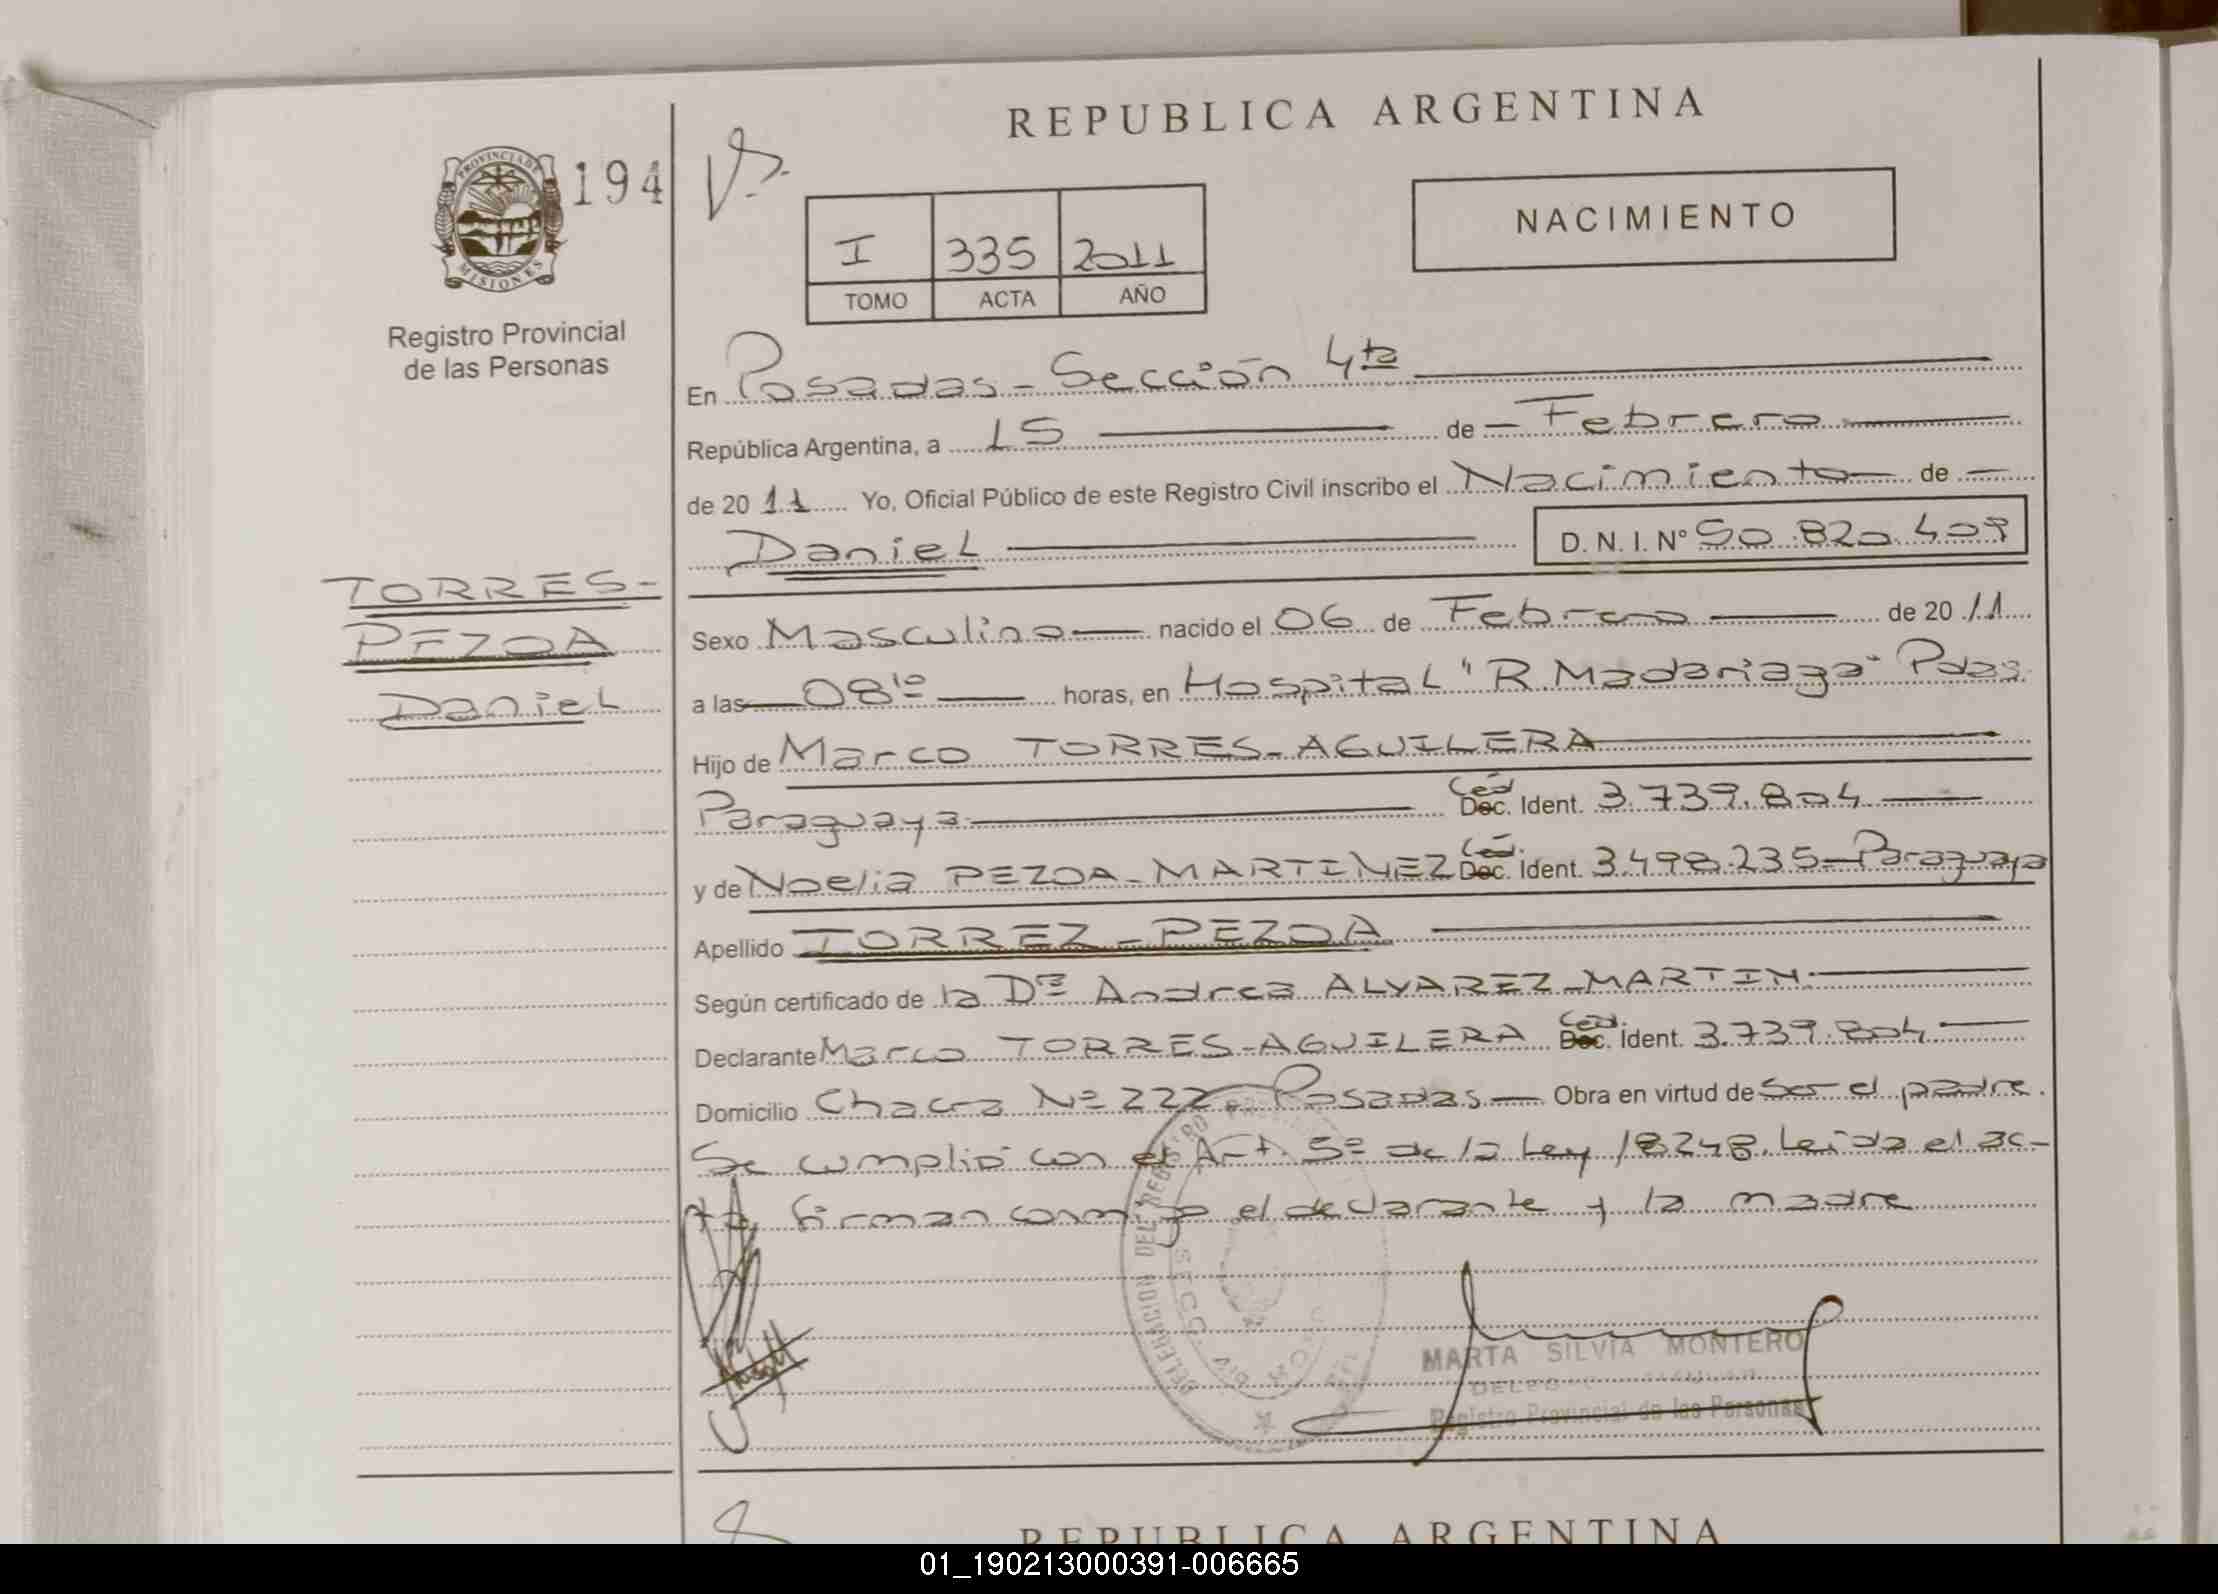 REPUBLICA ARGENTINA
PROVINCIA DE MISIONES
194
Registro Provincial
de las Personas
NACIMIENTO
I 335 2011
TOMO ACTA AÑO
En Posadas - Sección 4ta
República Argentina, a 15 de Febrero
de 2011 Yo, Oficial Público de este Registro Civil inscribo el Nacimiento de
Daniel D. N. I. N° 50.820.409
TORRES-
PEZOA
Daniel
Sexo Masculino nacido el 06 de Febrero de 2011
a las 08 10 horas, en Hospital "R. Madariaga" Pdas.
Hijo de Marco TORRES-AGUILERA
Paraguaya Ced. Ident. 3.739.804
y de Noelia PEZOA-MARTINEZ Ced. Ident. 3.498.235-Paraguaya
Apellido TORREZ-PEZOA
Según certificado de la Dra Andrea ALVAREZ-MARTIN.
Declarante Marco TORRES-AGUILERA Ced. Ident. 3.739.804
Domicilio Chacra Nº 222 Posadas Obra en virtud de ser el padre.
Se cumplió con el Art. 5º de la Ley 18248. Leida el ac-
ta, firman conmigo el declarante y la madre
DELEGACION DEL REGISTRO
MARTA SILVIA MONTERO
Registro Provincial de las Personas
REPUBLICA ARGENTINA
01_190213000391-006665